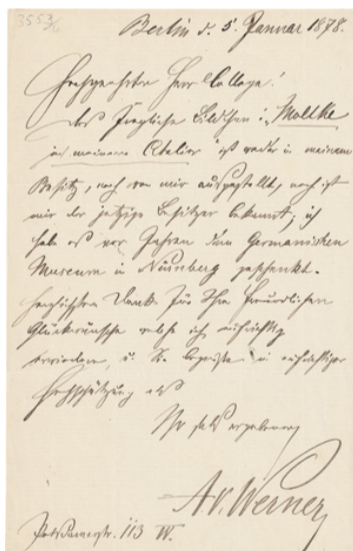 3553/2
Berlin d. 5. Januar 1878.
Hochgeehrter Herr College!
Das fragliche Bildchen: „Moltke
in meinem Atelier“ ist weder in meinem
Besitz, noch von mir ausgestellt, noch ist
mir der jetzige Besitzer bekannt; ich
habe es vor Jahren dem Germanischen
Museum in Nürnberg geschenkt.
Herzlichsten Dank für Ihre freundlichen
Glückwünsche welche ich aufrichtig
erwiedere, u. in aufrichtiger
Hochschätzung als
Ihr stets ergebener
A. v. Werner
Potsdamerstr. 113 W.